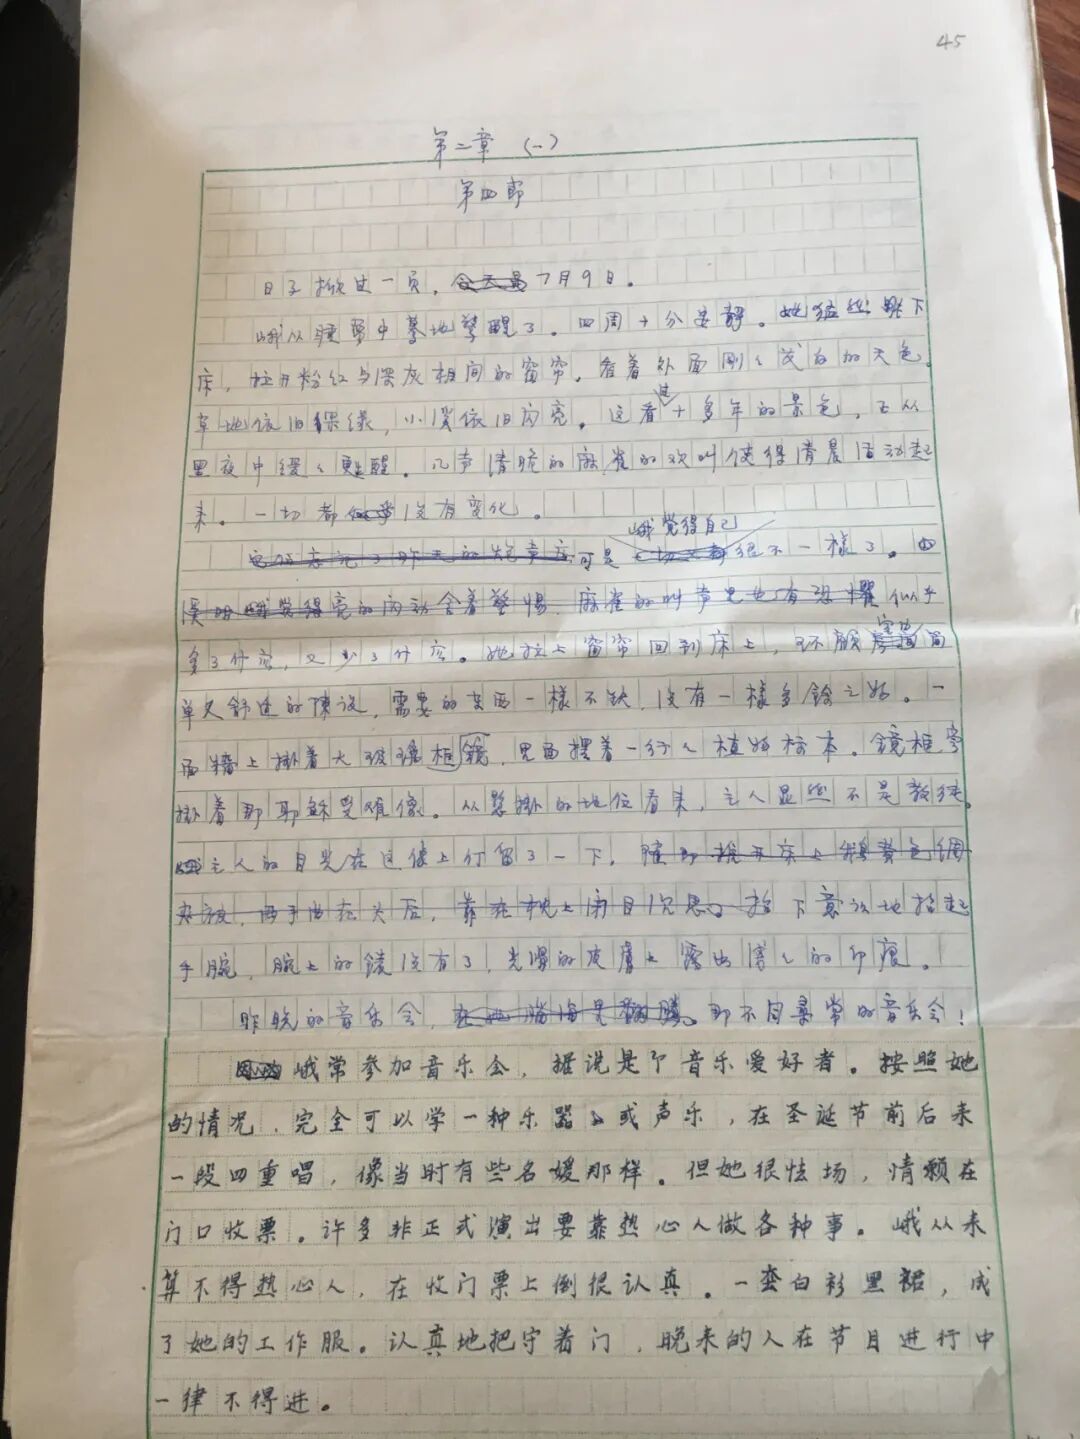 45
第二章 (一)
第四节
日子掀过一页，今天是7月9日。
峨从睡梦中蓦地擎醒了。四周十分安静。她猛然 下
床，拉开粉红与深灰相间的窗帘。看着外面刚刚泛白的天色。
草地依旧 绿，小溪依旧闪亮。这看过十多年的景色，正从
黑夜中缓缓甦醒。几声清脆的麻雀的欢叫使得清晨活动起
来。一切都 没有变化。
峨觉得自己
可是一切又都很不一樣了。
峨觉得亮的闪动含着警惕，麻雀的叫声也有恐懼 似乎
多了什么，又少了什么。她拉上窗帘回到床上，环顾 室内简
单又舒适的陳设，需要的东西一樣不缺，没有一樣多餘之物。一
面墙上掛着大玻璃框鏡，里面摆着一行行植物标本。鏡框旁
掛着那耶稣受难像。从悬掛的地位看来，主人显然不是教徒。
主人的目光在这像上停留了一下，随即 床上 黄色绸
夹被，两手 在头后，靠在枕上闭目沉思。 下意识地抬起
手腕，腕上的鐲没有了，光滑的皮膚上露出 的印痕。
昨晚的音乐会， 那不同寻常的音乐会！
峨常参加音乐会，据说是个音乐爱好者。按照她
的情况，完全可以学一种乐器或声乐，在圣诞节前后来
一段四重唱，像当时有些名媛那样。但她很怯场，情愿在
门口收票。许多非正式演出要靠热心人做各种事。峨从来
算不得热心人，在收门票上倒很认真。一套白衫黑裙，成
了她的工作服。认真地把守着门，晚来的人在节目进行中
一律不得进。